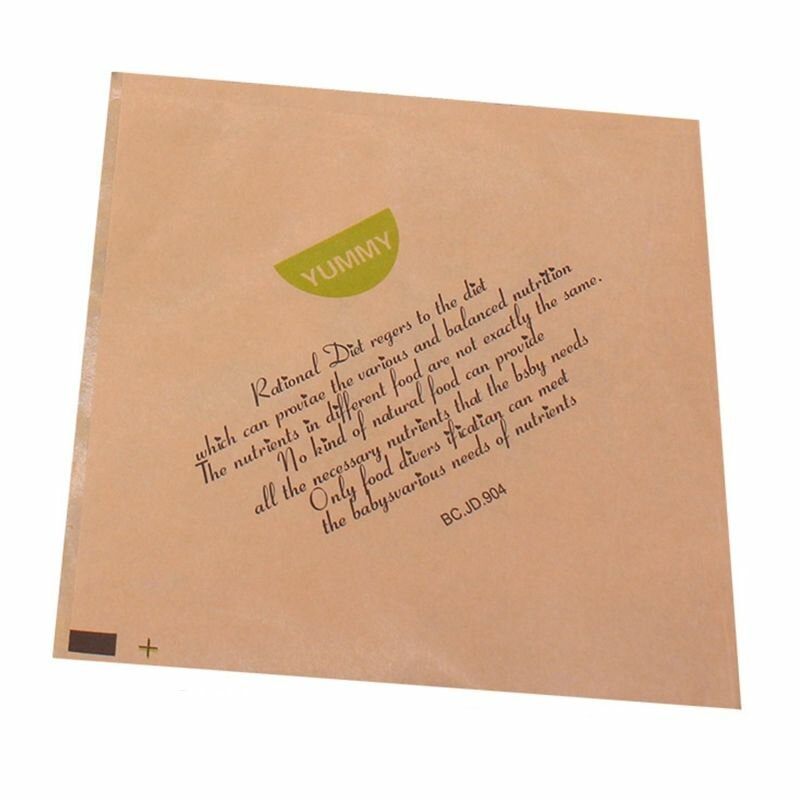 YUMMY
Rational Diet regers to the diet
which can proviae the various and balanced nutrition
The nutrients in different food are not exactly the same.
No kind of natural food can provide
all the necessary nutrients that the bsby needs
Only food divers ificatian can meet
the babysvarious needs of nutrients
BC.JD.904